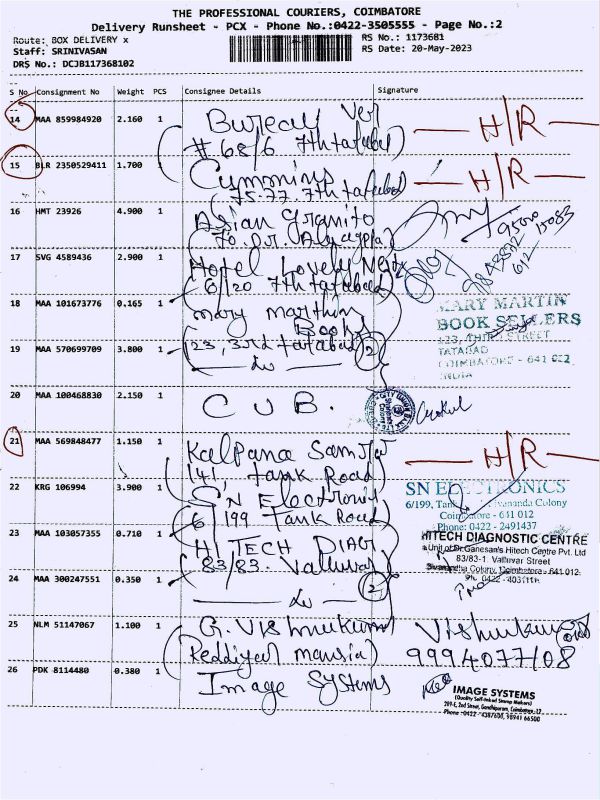 THE PROFESSIONAL COURIERS, COIMBATORE
Delivery Runsheet - PCX - Phone No.:0422-3505555 - Page No.:2
Route: BOX DELIVERY x
RS No.: 1173681
Staff: SRINIVASAN
RS Date: 20-May-2023
DRS No.: DCJB117368102
S No Consignment No Weight PCS Consignee Details Signature
14 MAA 859984920 2.160 1 Bureau Ver H/R
# 68/6 7th tatabad
15 BLR 2350529411 1.700 1 Cummins H/R
75.77. 7th tatabad
16 HMT 23926 4.900 1 Asian Granito
17 SVG 4589436 2.900 1 Hotel Lovely Nest
6/20 7th tatabad
18 MAA 101673776 0.165 1 mary marthin
Book
MARY MARTIN
BOOK SELLERS
123, THIRD STREET
TATABAD
COIMBATORE - 641 012
INDIA
19 MAA 570699709 3.800 1 123, 3rd tatabad 2
20 MAA 100468830 2.150 1 CUB. Gokul
21 MAA 569848477 1.150 1 Kalpana H/R
141, tank Road
22 KRG 106994 3.900 1 SN Electronic
6/199 Tank Road
SN ELECTRONICS
6/199, Tank Sivananda Colony
Coimbatore - 641 012
Phone: 0422 - 2491437
23 MAA 103057355 0.710 1 HITECH DIAG
83/83. Valluvar
HITECH DIAGNOSTIC CENTRE
A Unit of Dr.Ganesan's Hitech Centre Pvt. Ltd
83/83-1. Valluvar Street
Sivanandha Colony, Coimbatore - 641 012.
24 MAA 300247551 0.350 1 2
25 NLM 51147067 1.100 1 G. Vishnukumar Vishnukumar
Reddiyar mansion 9994077108
26 PDK 8114480 0.380 1 Image Systems
IMAGE SYSTEMS
(Quality Self-Inked Stamp Makers)
209-E, 2nd Street, Gandhipuram, Coimbatore-12
Phone-0422 - 4387600, 98941 66500